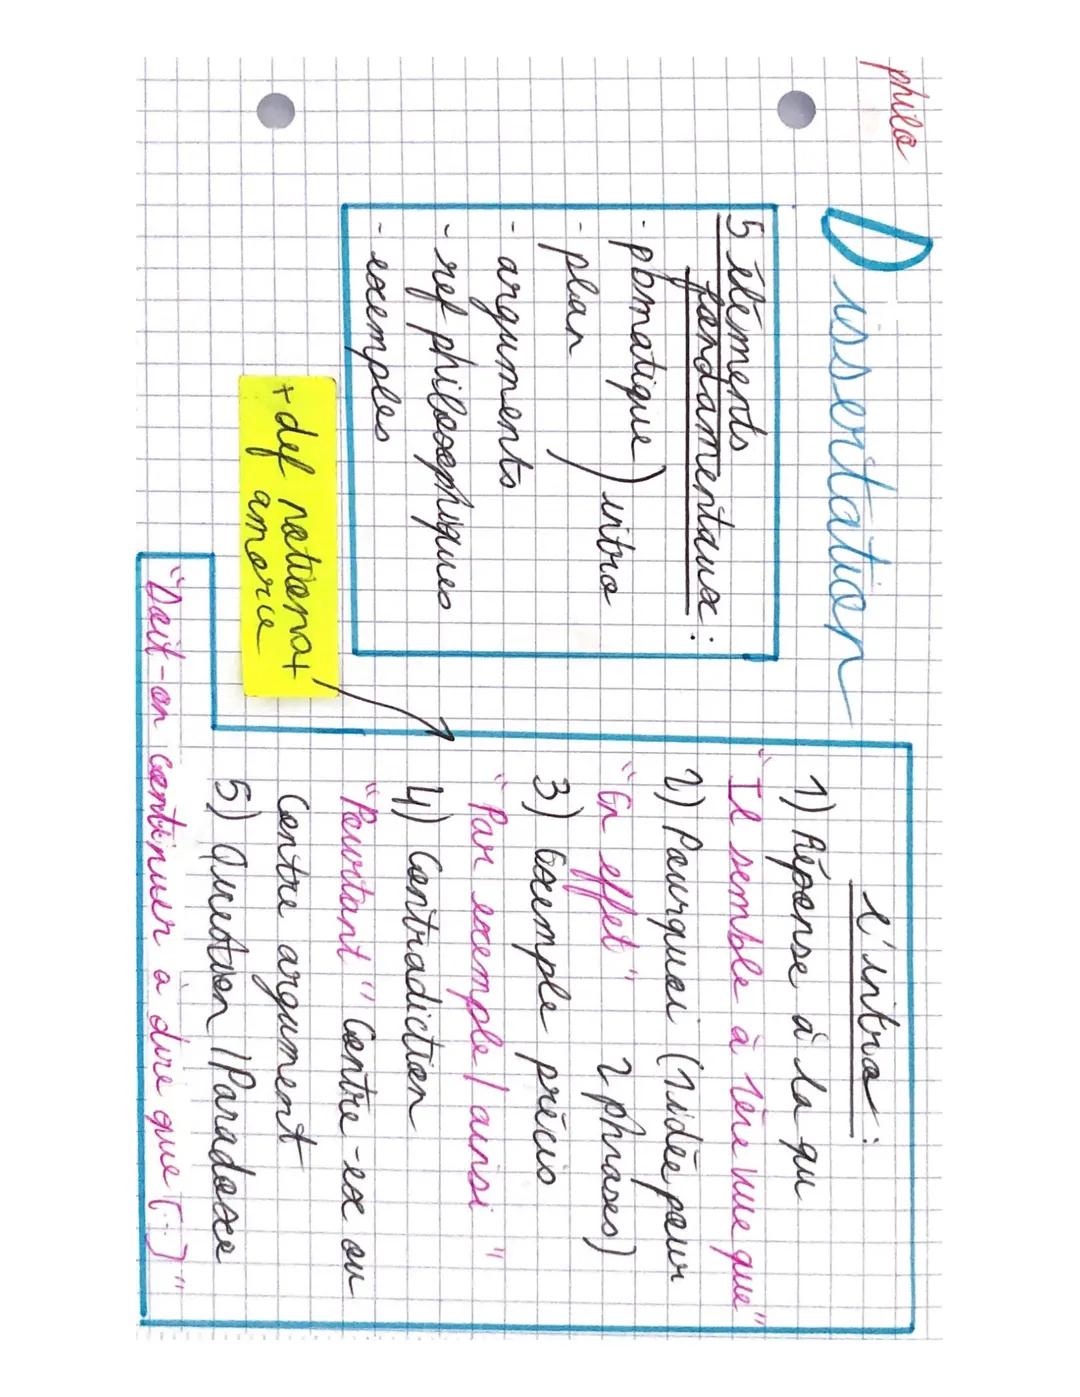 philo
Dissertation
5 éléments
fondamentaux :
- pbmatique ) intro
- plan
- arguments
- ref philosophiques
- exemples
+ def notions +
amorce
l'intro :
1) Réponse à la qu
"Il semble à 1ère vue que"
2) Pourquoi (1 idée pour
"En effet" 2 phrases)
3) Exemple précis
"Par exemple / ainsi"
4) Contradiction
"Pourtant" Contre-ex ou
Contre argument
5) Question / Paradoxe
"Doit-on continuer à dire que [...]"